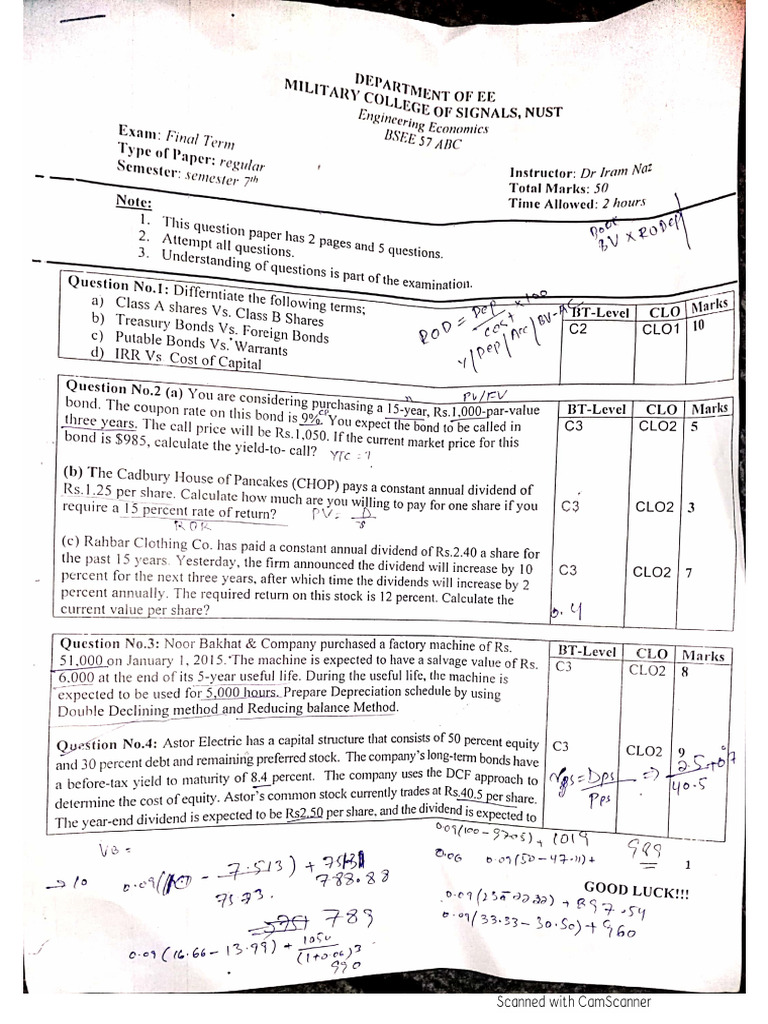 DEPARTMENT OF EE
MILITARY COLLEGE OF SIGNALS, NUST
Engineering Economics
BSEE 57 ABC
Exam: Final Term
Type of Paper: regular
Semester: semester 7th
Instructor: Dr Iram Naz
Total Marks: 50
Time Allowed: 2 hours
Note:
1. This question paper has 2 pages and 5 questions.
2. Attempt all questions.
3. Understanding of questions is part of the examination.
BV x RODep
Question No.1: Differntiate the following terms;
a) Class A shares Vs. Class B Shares
b) Treasury Bonds Vs. Foreign Bonds
c) Putable Bonds Vs. Warrants
d) IRR Vs Cost of Capital
ROD = Dep / cost x 100
Y/Dep/Acc/BV-AC
BT-Level CLO Marks
C2 CLO1 10
PV/FV
Question No.2 (a) You are considering purchasing a 15-year, Rs.1,000-par-value
bond. The coupon rate on this bond is 9%. You expect the bond to be called in
three years. The call price will be Rs.1,050. If the current market price for this
bond is $985, calculate the yield-to- call?
YTC = ?
BT-Level CLO Marks
C3 CLO2 5
(b) The Cadbury House of Pancakes (CHOP) pays a constant annual dividend of
Rs.1.25 per share. Calculate how much are you willing to pay for one share if you
require a 15 percent rate of return?
ROR
C3 CLO2 3
(c) Rahbar Clothing Co. has paid a constant annual dividend of Rs.2.40 a share for
the past 15 years. Yesterday, the firm announced the dividend will increase by 10
percent for the next three years, after which time the dividends will increase by 2
percent annually. The required return on this stock is 12 percent. Calculate the
current value per share?
C3 CLO2 7
0.4
Question No.3: Noor Bakhat & Company purchased a factory machine of Rs.
51,000 on January 1, 2015. The machine is expected to have a salvage value of Rs.
6,000 at the end of its 5-year useful life. During the useful life, the machine is
expected to be used for 5,000 hours. Prepare Depreciation schedule by using
Double Declining method and Reducing balance Method.
BT-Level CLO Marks
C3 CLO2 8
Question No.4: Astor Electric has a capital structure that consists of 50 percent equity
and 30 percent debt and remaining preferred stock. The company's long-term bonds have
a before-tax yield to maturity of 8.4 percent. The company uses the DCF approach to
determine the cost of equity. Astor's common stock currently trades at Rs.40.5 per share.
The year-end dividend is expected to be Rs2.50 per share, and the dividend is expected to
C3 CLO2 9
= Dps / Pps =>
40.5
VB =
788.88
789
0.09(16.66-13.99) + 1050 / (1+0.06)3
990
+ 1019
0.06 0.09(50-47.11)+
989
1
GOOD LUCK!!!
+ 897.54
0.09(33.33-30.50)+960
Scanned with CamScanner